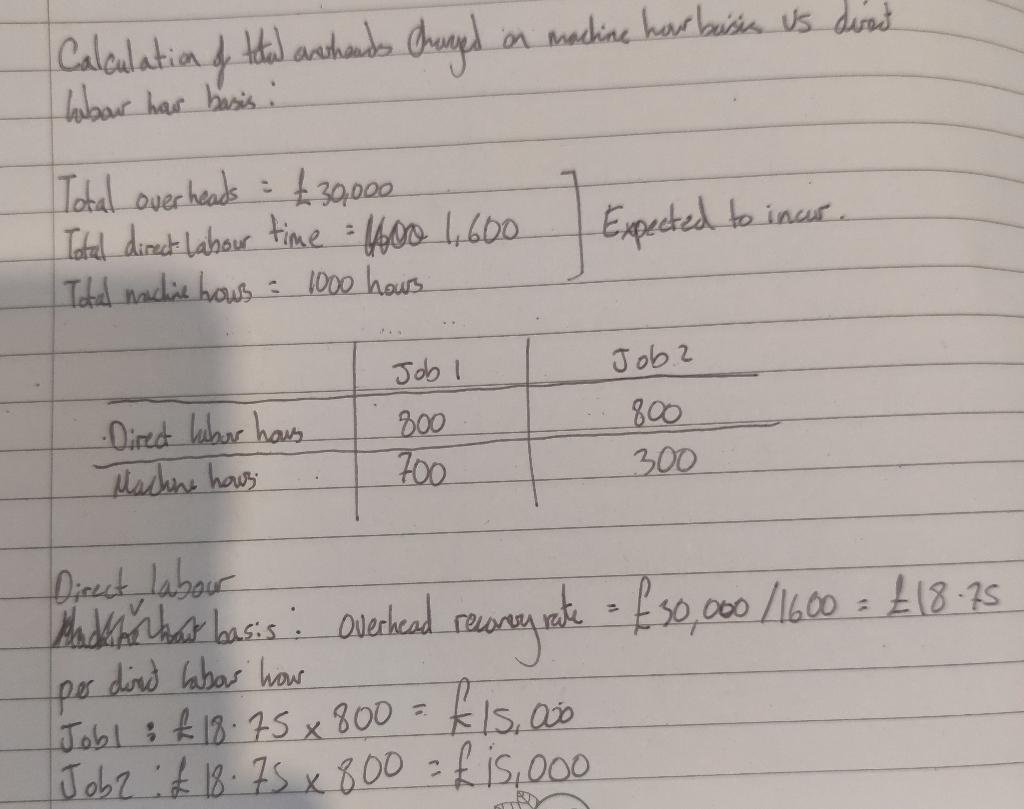 Calculation of total overheads charged on machine hour basis VS direct
labour hour basis:
Total overheads = £30,000
Total direct labour time = 1,600
Expected to incur.
Total machine hours = 1000 hours
Job 1 Job 2
Direct labour hours 800 800
Machine hours 700 300
Direct labour
basis: Overhead recovery rate = £30,000/1600 = £18.75
per direct labour hour
Job1: £18.75 x 800 = £15,000
Job2: £18.75 x 800 = £15,000